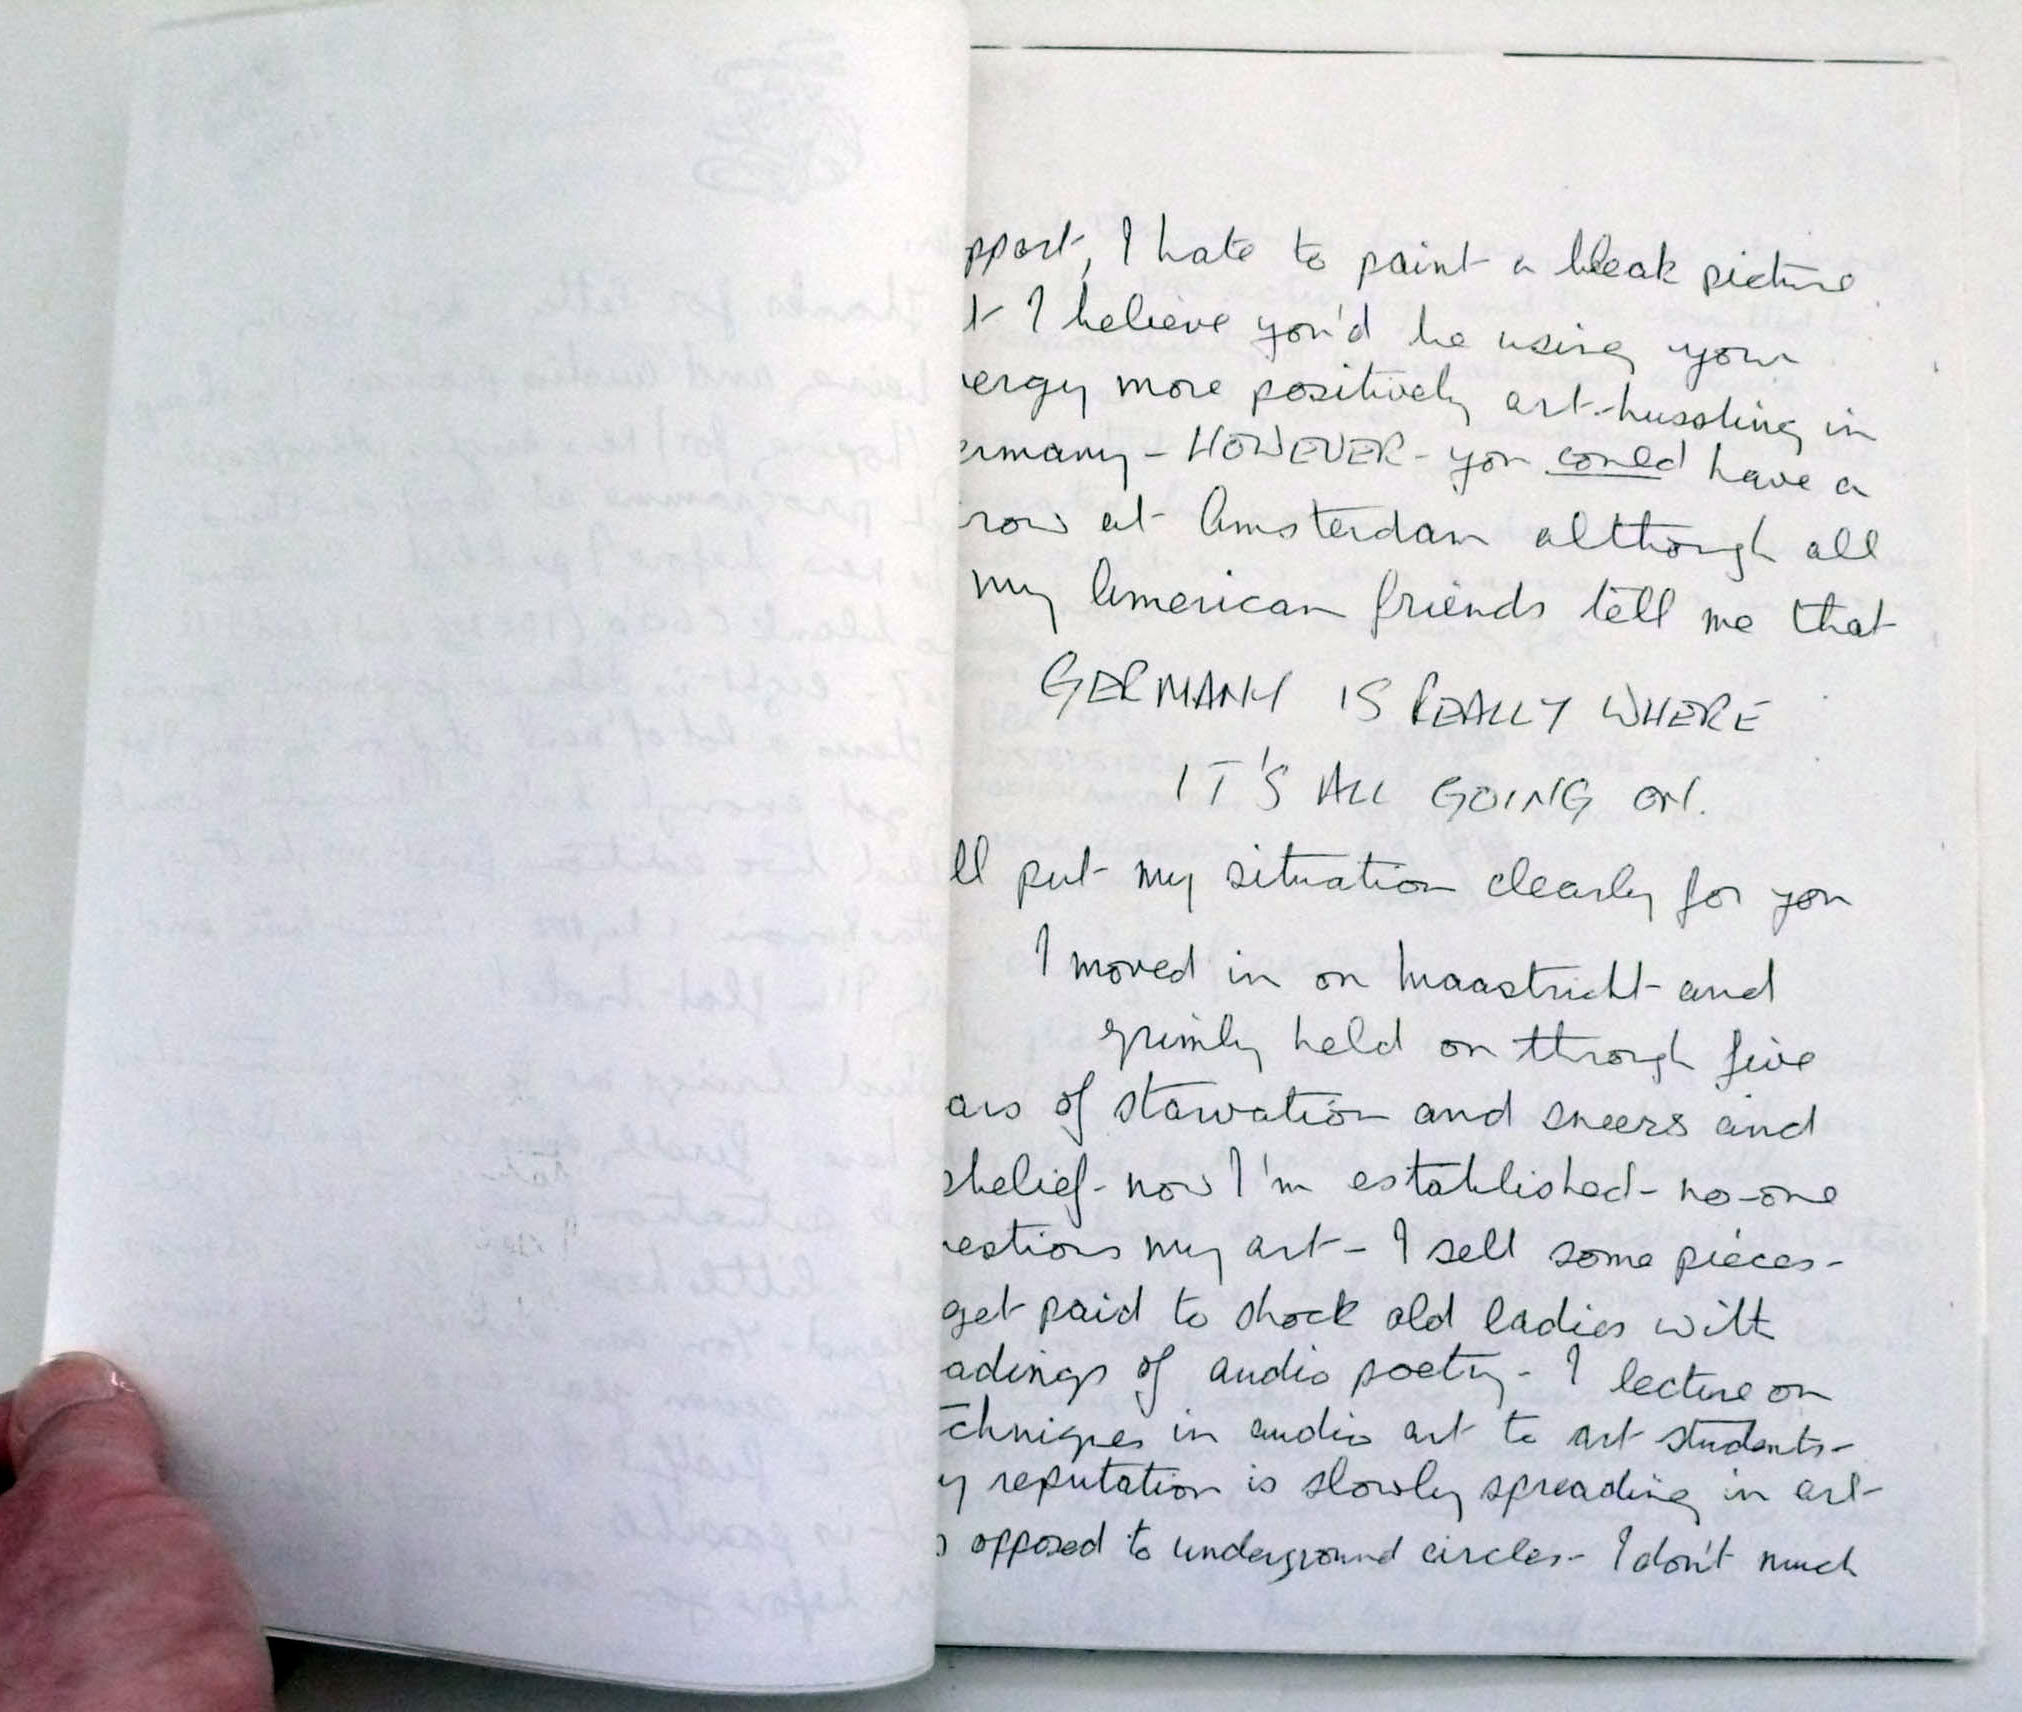 pport, I hate to paint a bleak picture
t I believe you'd be using your
ergy more positively art-hussling in
ermany - HOWEVER - you could have a
row at Amsterdam although all
my American friends tell me that
GERMANY IS REALLY WHERE
IT'S ALL GOING ON.
ll put my situation clearly for you
I moved in on Maastricht and
grimly held on through five
ars of starvation and sneers and
sbelief - now I'm established - no-one
estions my art - I sell some pieces -
get paid to shock old ladies with
adings of audio poetry - I lecture on
chniques in audio art to art students -
y reputation is slowly spreading in art -
s opposed to underground circles - I don't much